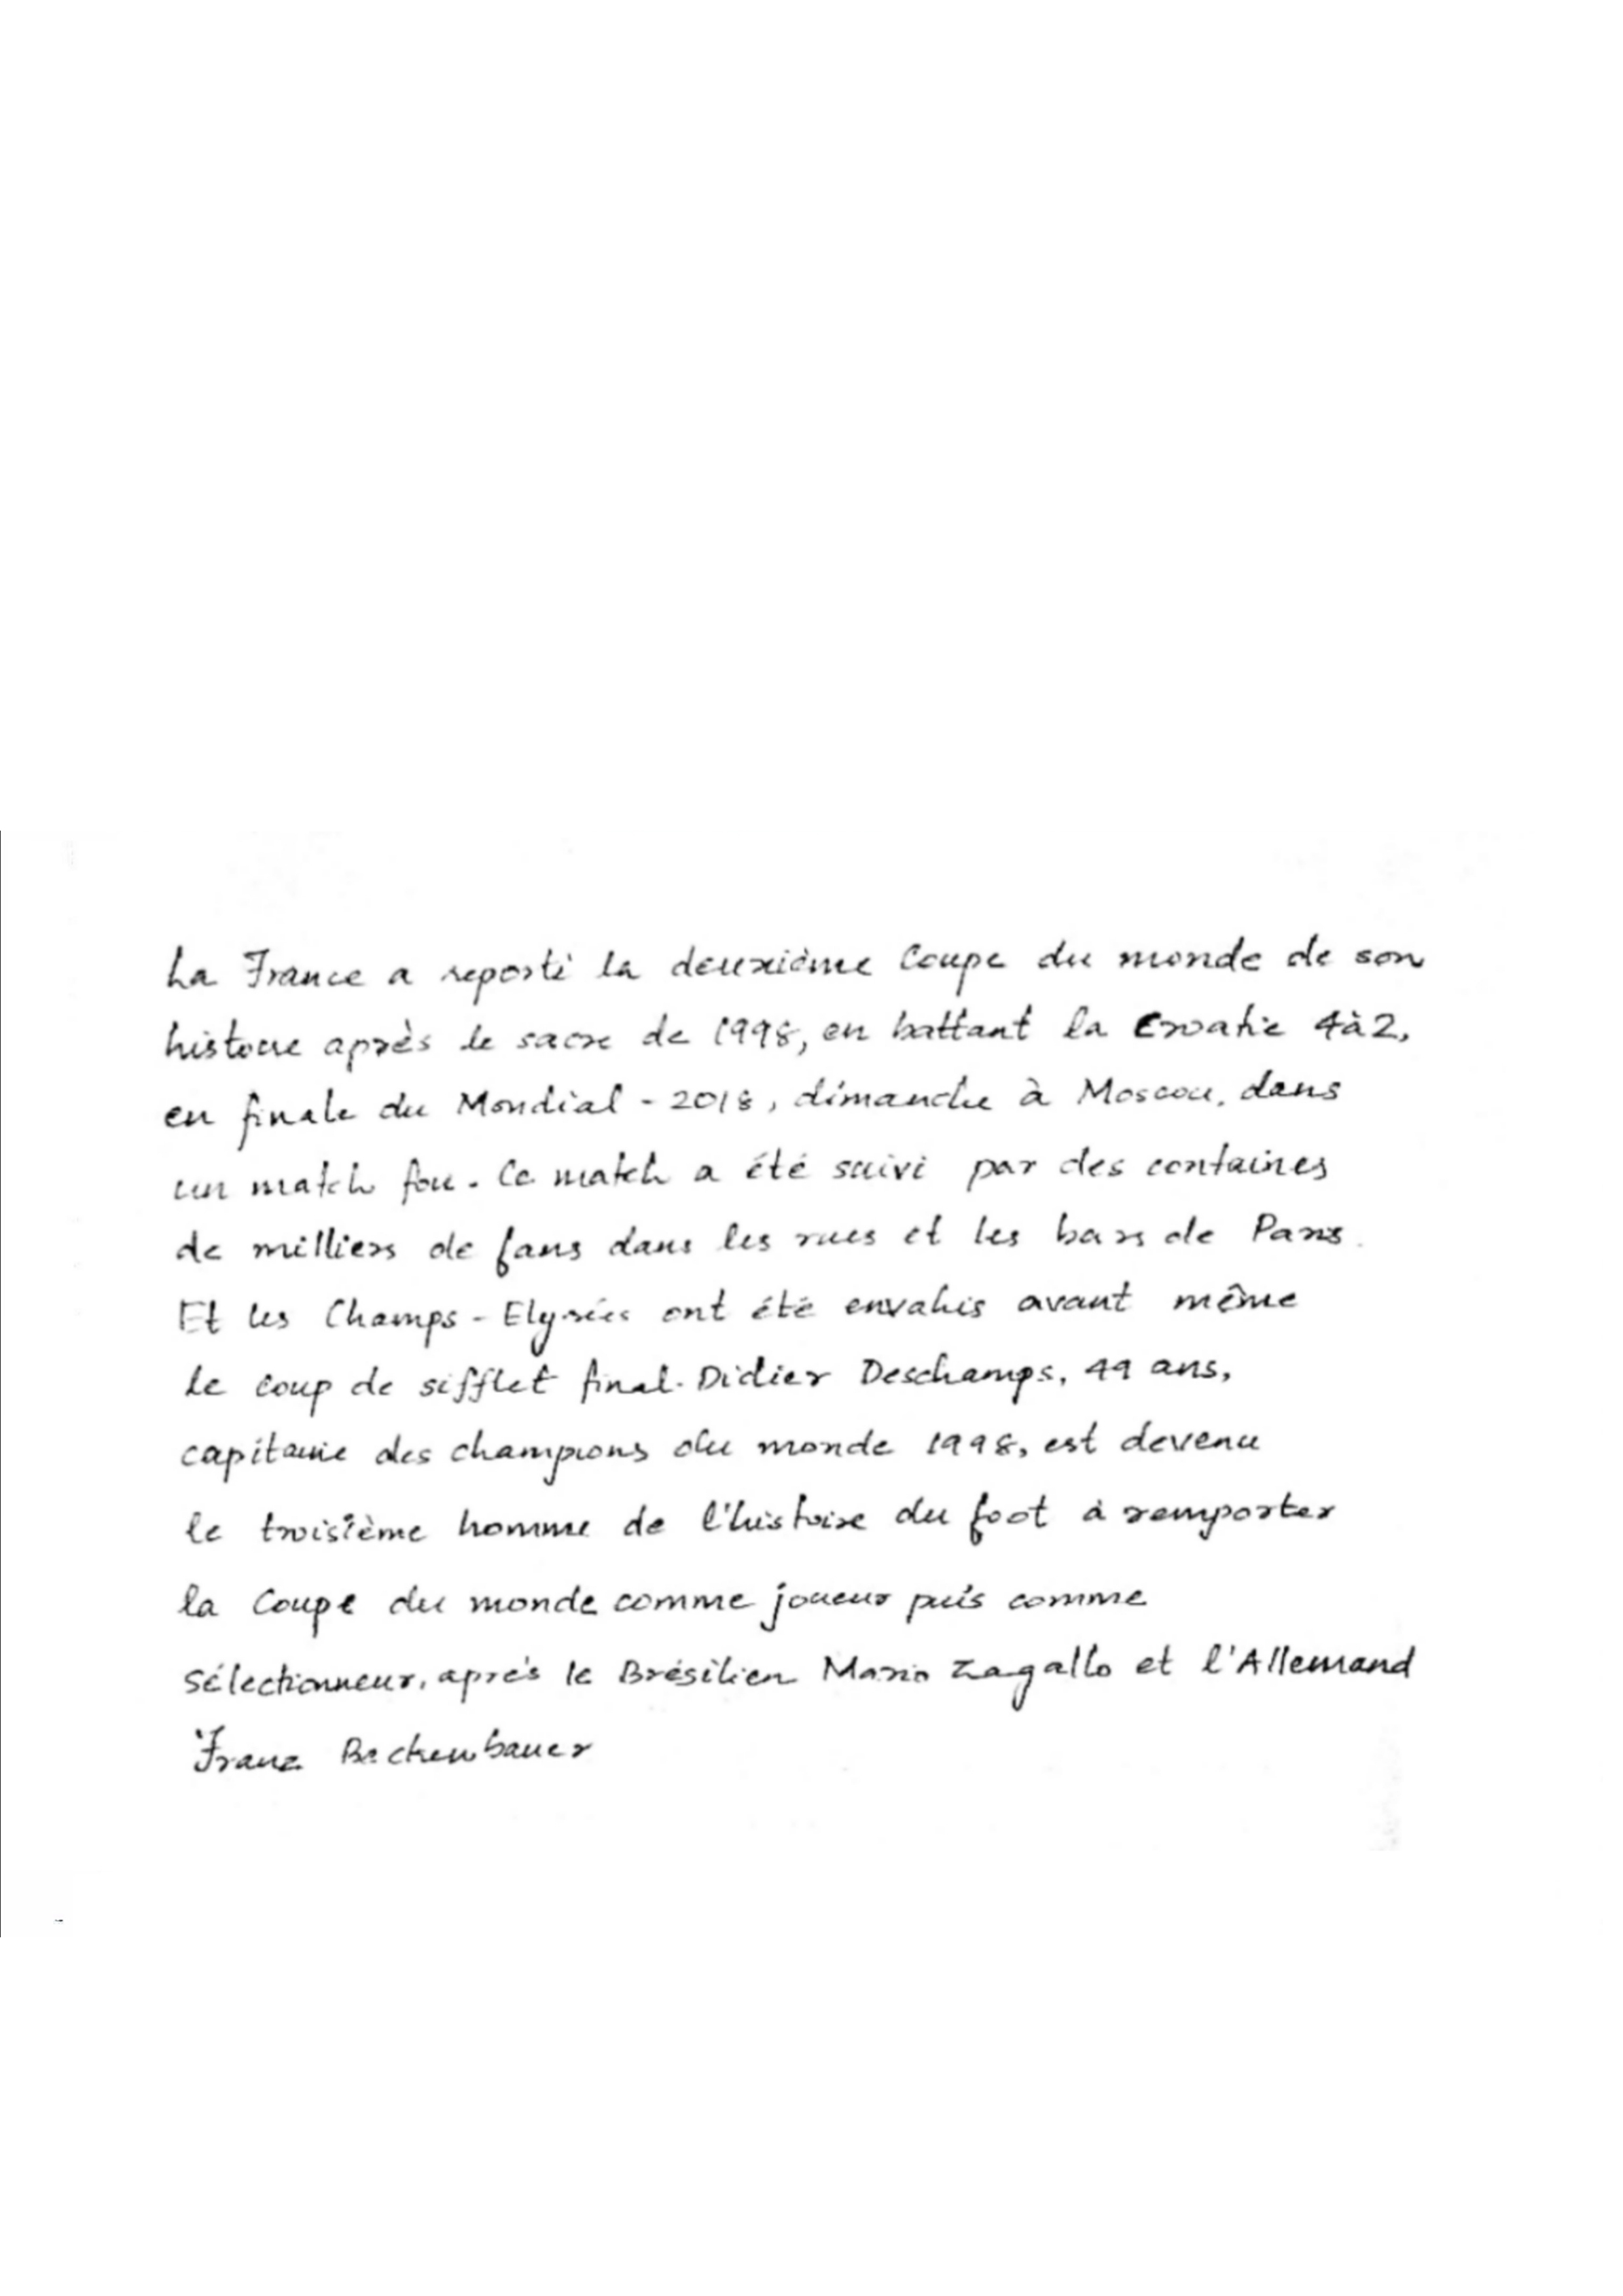 La France a reporté la deuxième Coupe du monde de son
histoire après le sacre de 1998, en battant la Croatie 4à2,
en finale du Mondial - 2018, dimanche à Moscou, dans
un match fou. Ce match a été suivi par des containes
de milliers de fans dans les rues et les bars de Paris.
Et les Champs - Elysées ont été envahis avant même
le coup de sifflet final. Didier Deschamps, 49 ans,
capitaine des champions du monde 1998, est devenu
le troisième homme de l'histoire du foot à remporter
la Coupe du monde comme joueur puis comme
sélectionneur, après le Brésilien Mario Zagallo et l'Allemand
Franz Beckenbauer